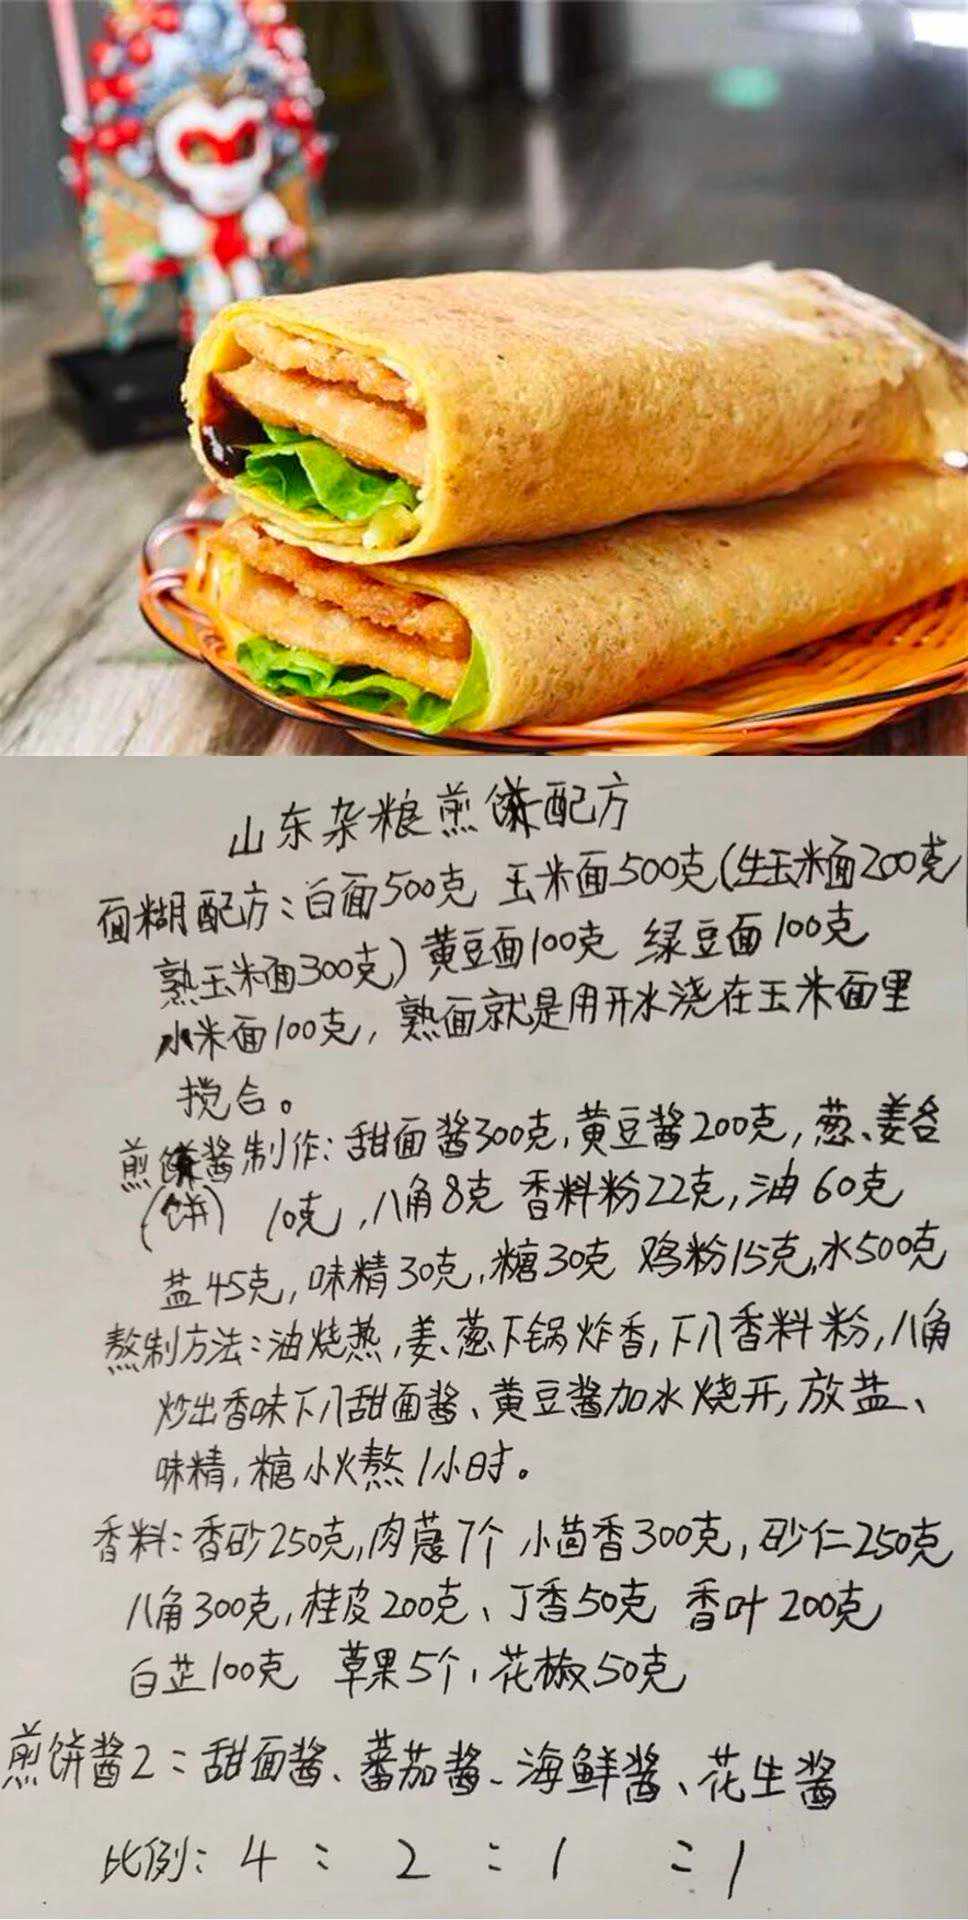 山东杂粮煎饼配方
面糊配方:白面500克 玉米面500克(生玉米面200克
熟玉米面300克)黄豆面100克 绿豆面100克
小米面100克,熟面就是用开水浇在玉米面里
搅合。
煎饼酱制作:甜面酱300克,黄豆酱200克,葱、姜各
(饼) 10克,八角8克 香料粉22克,油60克
盐45克,味精30克,糖30克 鸡粉15克,水500克
熬制方法:油烧热,姜、葱下锅炸香,下入香料粉,八角
炒出香味下入甜面酱、黄豆酱加水烧开,放盐、
味精,糖小火熬1小时。
香料:香砂250克,肉蔻7个 小茴香300克,砂仁250克
八角300克,桂皮200克、丁香50克 香叶200克
白芷100克 草果5个,花椒50克
煎饼酱2:甜面酱、蕃茄酱、海鲜酱、花生酱
比例:4:2:1:1